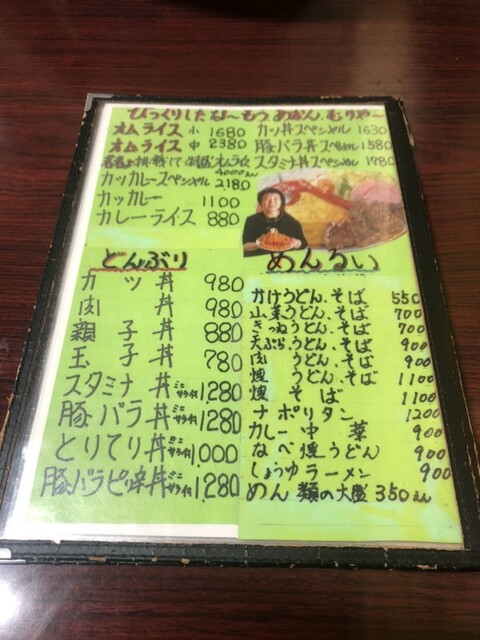 びっくりしたな〜もう あかん、むりや〜
オムライス 小 1680
オムライス 中 2380
オムライス
4000えん
カツカレースペシャル 2180
カツカレー 1100
カレーライス 880
カツ丼スペシャル 1630
豚バラ丼スペシャル 1580
スタミナ丼スペシャル 1780
どんぶり
カツ丼 980
肉丼 980
親子丼 880
玉子丼 780
スタミナ丼 ミニサラダ付 1,280
豚バラ丼 ミニサラダ付 1,280
とりてり丼 ミニサラダ付 1,000
豚バラピリ辛丼 ミニサラダ付 1,280
めんるい
かけうどん、そば 550
山菜うどん、そば 700
きつねうどん、そば 700
天ぷらうどん、そば 900
肉うどん、そば 900
焼うどん、そば 1100
焼そば 1100
ナポリタン 1200
カレー中華 900
なべ焼うどん 900
しょうゆラーメン 900
めん類の大盛 350えん